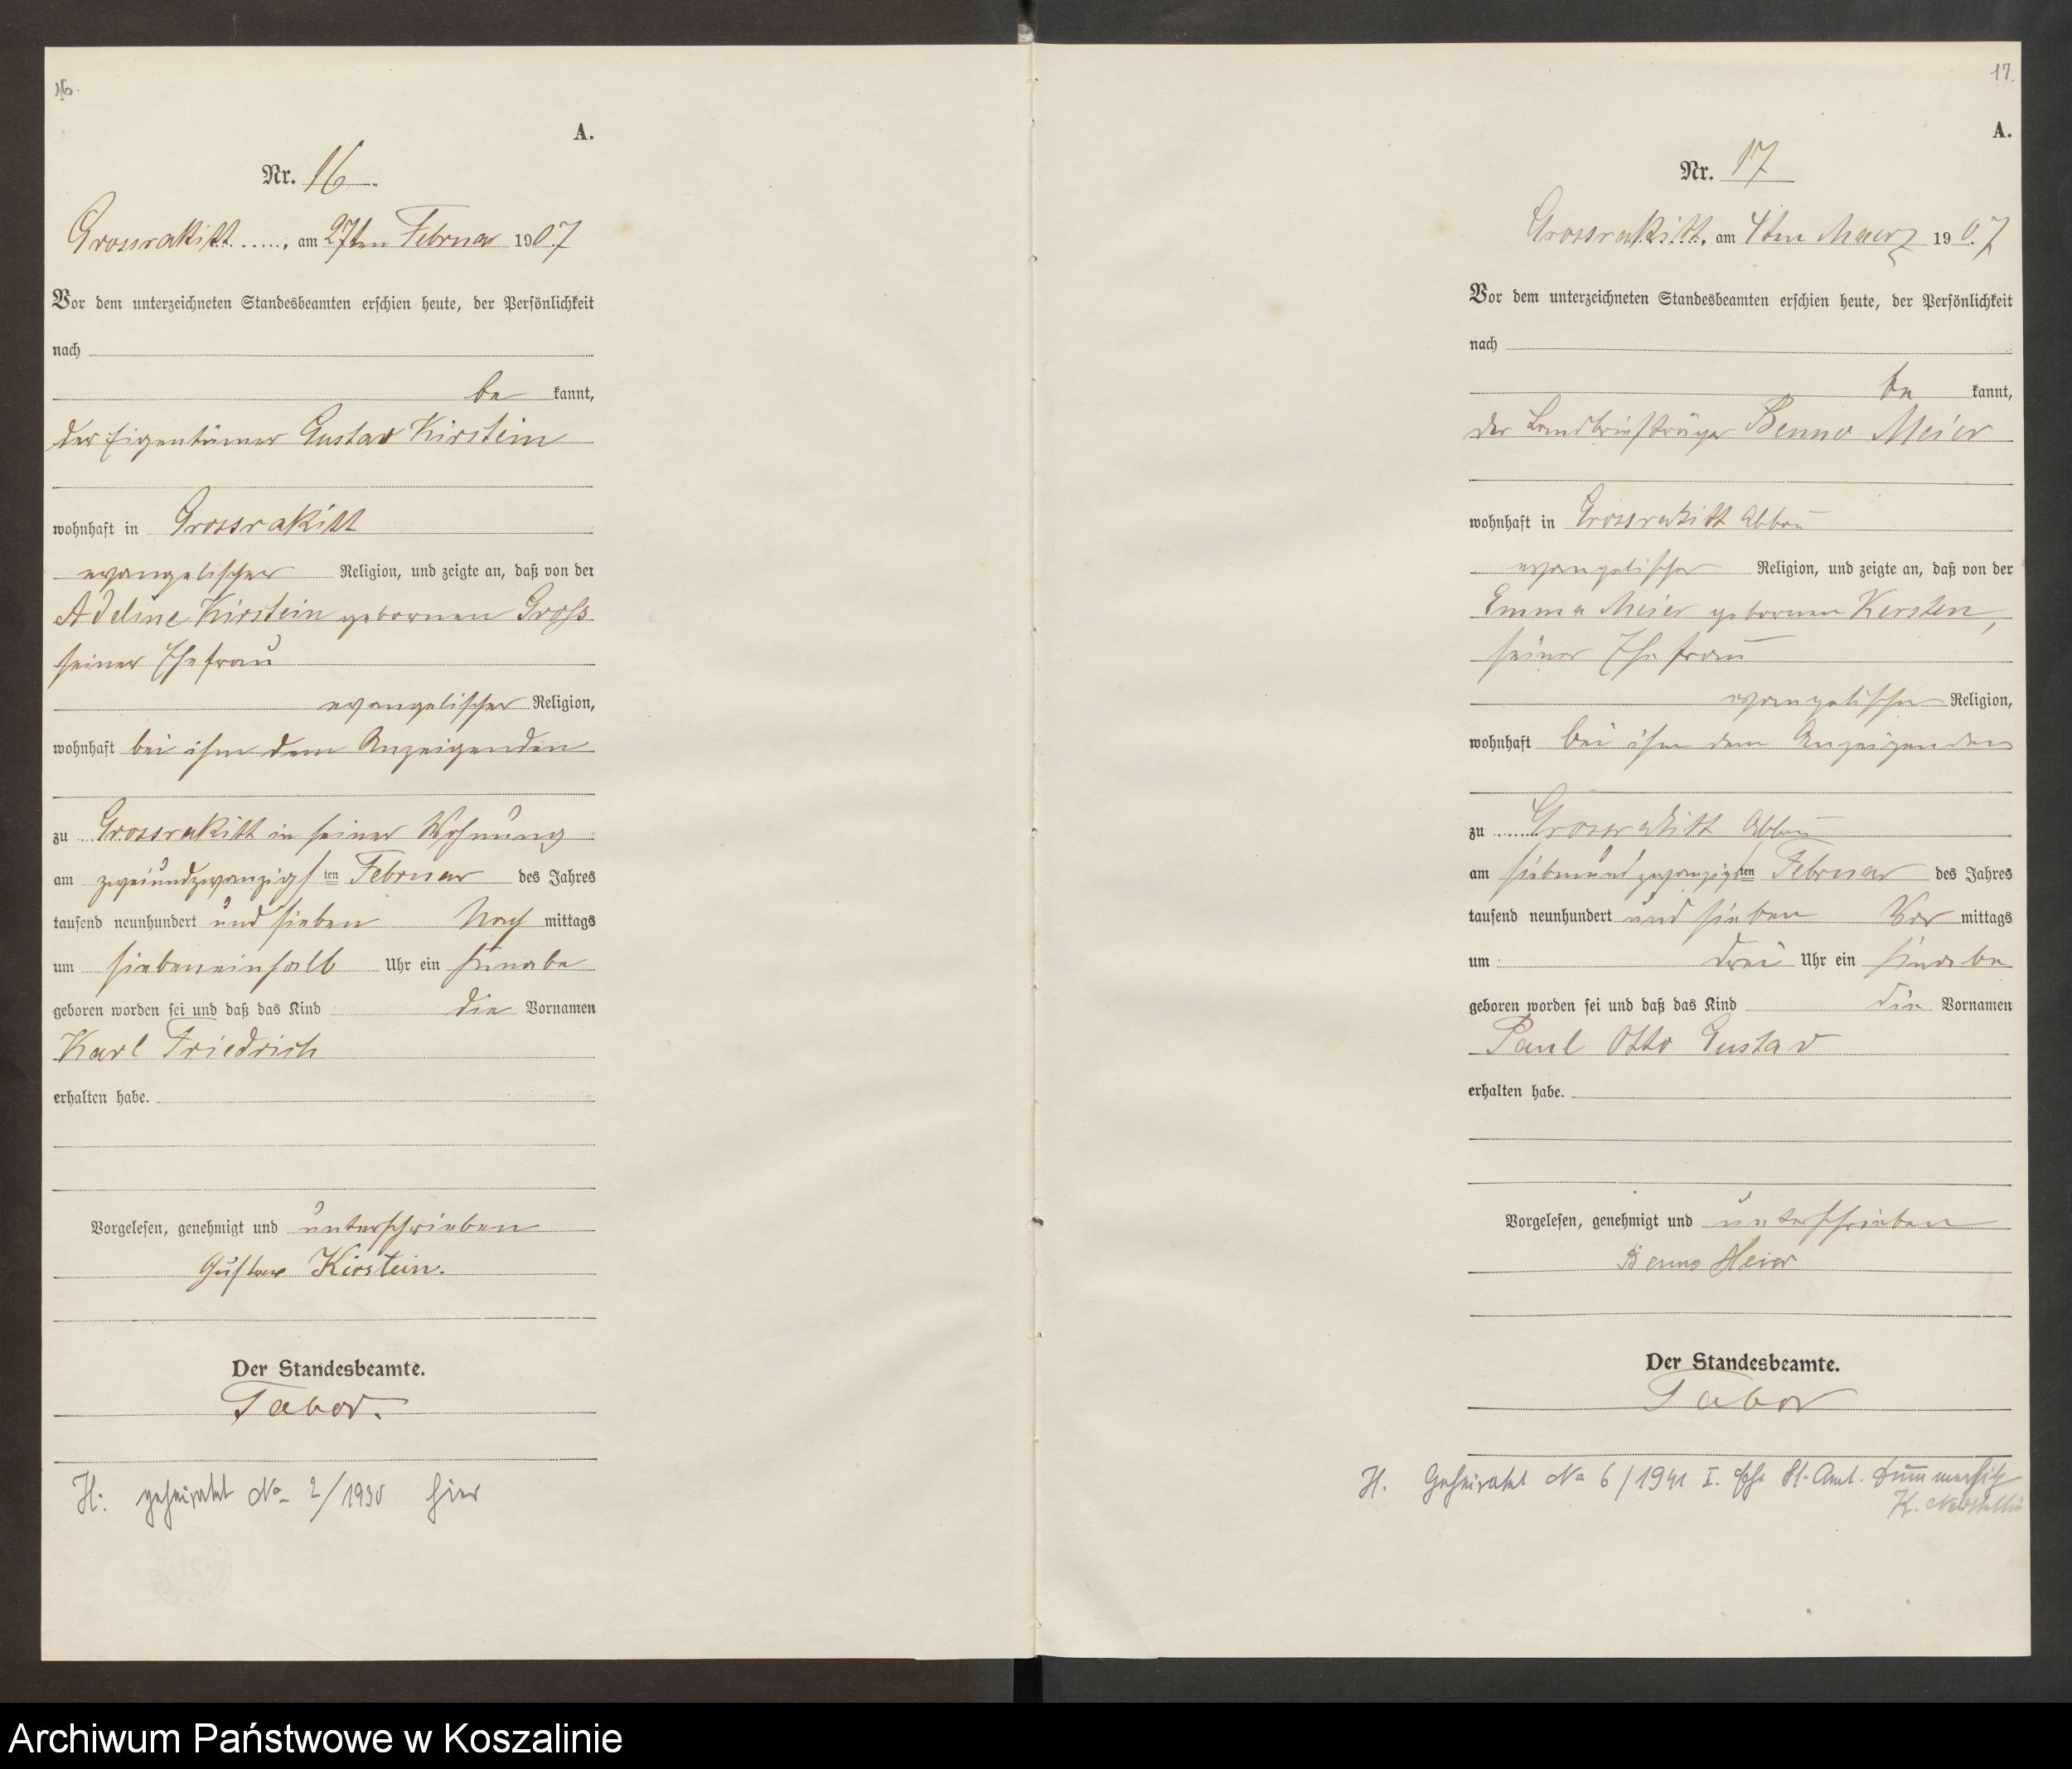 16.
A.
Nr. 16.
Grossrakitt, am 27ten Februar 1907
Vor dem unterzeichneten Standesbeamten erschien heute, der Persönlichkeit
nach
be kannt,
der Eigentümer Gustav Kirstein
wohnhaft in Grossrakitt
evangelischer Religion, und zeigte an, daß von der
Adeline Kirstein gebornen Gross
seiner Ehefrau
evangelischer Religion,
wohnhaft bei ihm dem Anzeigenden
zu Grossrakitt in seiner Wohnung
am zweiundzwanzigsten Februar des Jahres
tausend neunhundert und sieben Nach mittags
um siebeneinhalb Uhr ein Knabe
geboren worden sei und daß das Kind die Vornamen
Karl Friedrich
erhalten habe.
Vorgelesen, genehmigt und unterschrieben
Gustav Kirstein.
Der Standesbeamte.
Tabor.
H: geheiratet No 2/1930 hier
17.
A.
Nr. 17
Grossrakitt, am 4ten Maerz 1907
Vor dem unterzeichneten Standesbeamten erschien heute, der Persönlichkeit
nach
be kannt,
der Landbriefträger Benno Meier
wohnhaft in Grossrakitt Abbau
evangelischer Religion, und zeigte an, daß von der
Emma Meier gebornen Kersten,
seiner Ehefrau
evangelischer Religion,
wohnhaft bei ihm dem Anzeigenden
zu Grossrakitt Abbau
am siebenundzwanzigsten Februar des Jahres
tausend neunhundert und sieben Vor mittags
um drei Uhr ein Knabe
geboren worden sei und daß das Kind die Vornamen
Paul Otto Gustav
erhalten habe.
Vorgelesen, genehmigt und unterschrieben
Benno Meier
Der Standesbeamte.
Tabor
H. Geheiratet No 6/1941 I. St. Amt.
Archiwum Państwowe w Koszalinie